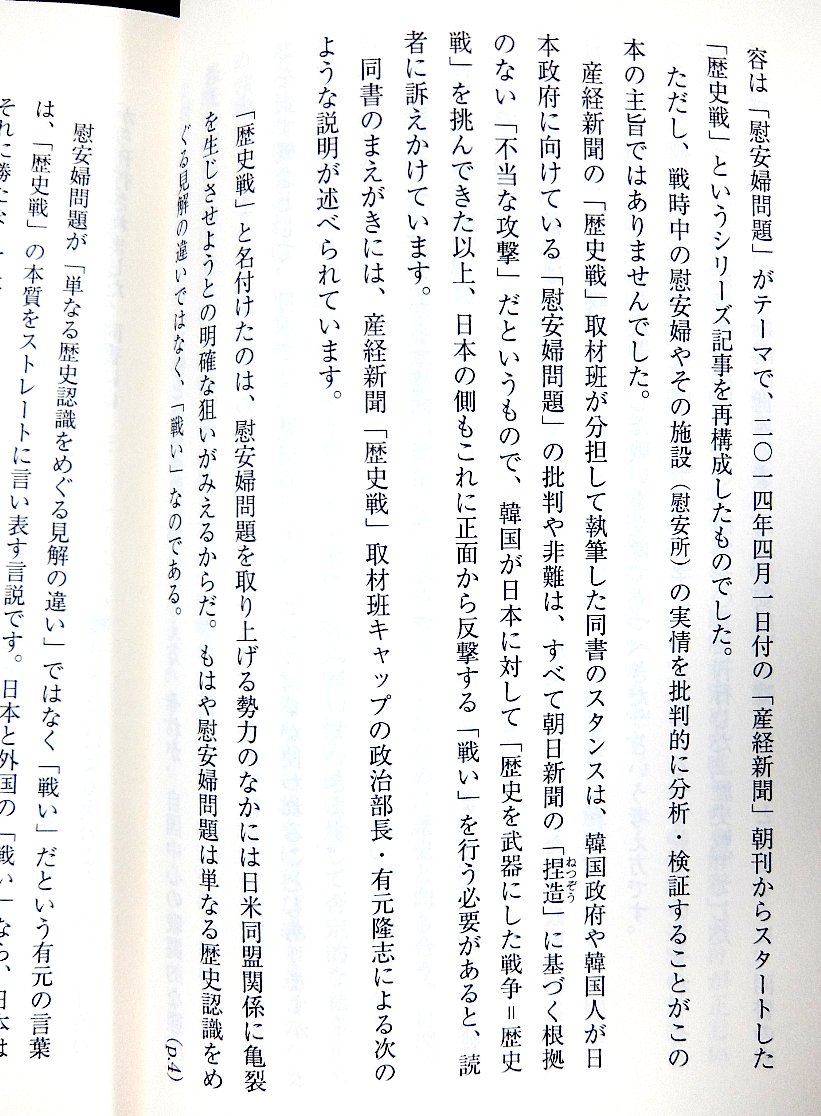 容は「慰安婦問題」がテーマで、二〇一四年四月一日付の「産経新聞」朝刊からスタートした
「歴史戦」というシリーズ記事を再構成したものでした。
ただし、戦時中の慰安婦やその施設（慰安所）の実情を批判的に分析・検証することがこの
本の主旨ではありませんでした。
産経新聞の「歴史戦」取材班が分担して執筆した同書のスタンスは、韓国政府や韓国人が日
本政府に向けている「慰安婦問題」の批判や非難は、すべて朝日新聞の「捏造」に基づく根拠
ねつぞう
のない「不当な攻撃」だというもので、韓国が日本に対して「歴史を武器にした戦争＝歴史
戦」を挑んできた以上、日本の側もこれに正面から反撃する「戦い」を行う必要があると、読
者に訴えかけています。
同書のまえがきには、産経新聞「歴史戦」取材班キャップの政治部長・有元隆志による次の
ような説明が述べられています。
「歴史戦」と名付けたのは、慰安婦問題を取り上げる勢力のなかには日米同盟関係に亀裂
を生じさせようとの明確な狙いがみえるからだ。もはや慰安婦問題は単なる歴史認識をめ
ぐる見解の違いではなく、「戦い」なのである。 (p.4)
慰安婦問題が「単なる歴史認識をめぐる見解の違い」ではなく「戦い」だという有元の言葉
は、「歴史戦」の本質をストレートに言い表す言説です。日本と外国の「戦い」なら、日本は
それに勝た